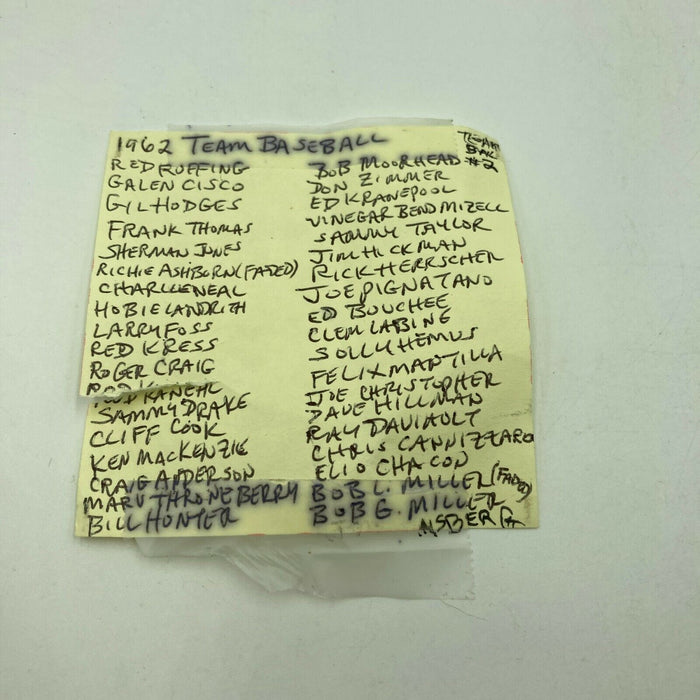 1962 TEAM BASEBALL
TEAM
BALL
#2
RED RUFFING
GALEN CISCO
GIL HODGES
FRANK THOMAS
SHERMAN JONES
RICHIE ASHBURN (FADED)
CHARLIE NEAL
HOBIE LANDRITH
LARRY FOSS
RED KRESS
ROGER CRAIG
ROD KANEHL
SAMMY DRAKE
CLIFF COOK
KEN MACKENZIE
CRAIG ANDERSON
MARV THRONEBERRY
BILL HUNTER
BOB MOORHEAD
DON ZIMMER
ED KRANEPOOL
VINEGAR BEND MIZELL
SAMMY TAYLOR
JIM HICKMAN
RICK HERRSCHER
JOE PIGNATANO
ED BOUCHEE
CLEM LABINE
SOLLY HEMUS
FELIX MANTILLA
JOE CHRISTOPHER
DAVE HILLMAN
RAY DAVIAULT
CHRIS CANNIZZARO
ELIO CHACON
BOB L. MILLER (FADED)
BOB G. MILLER